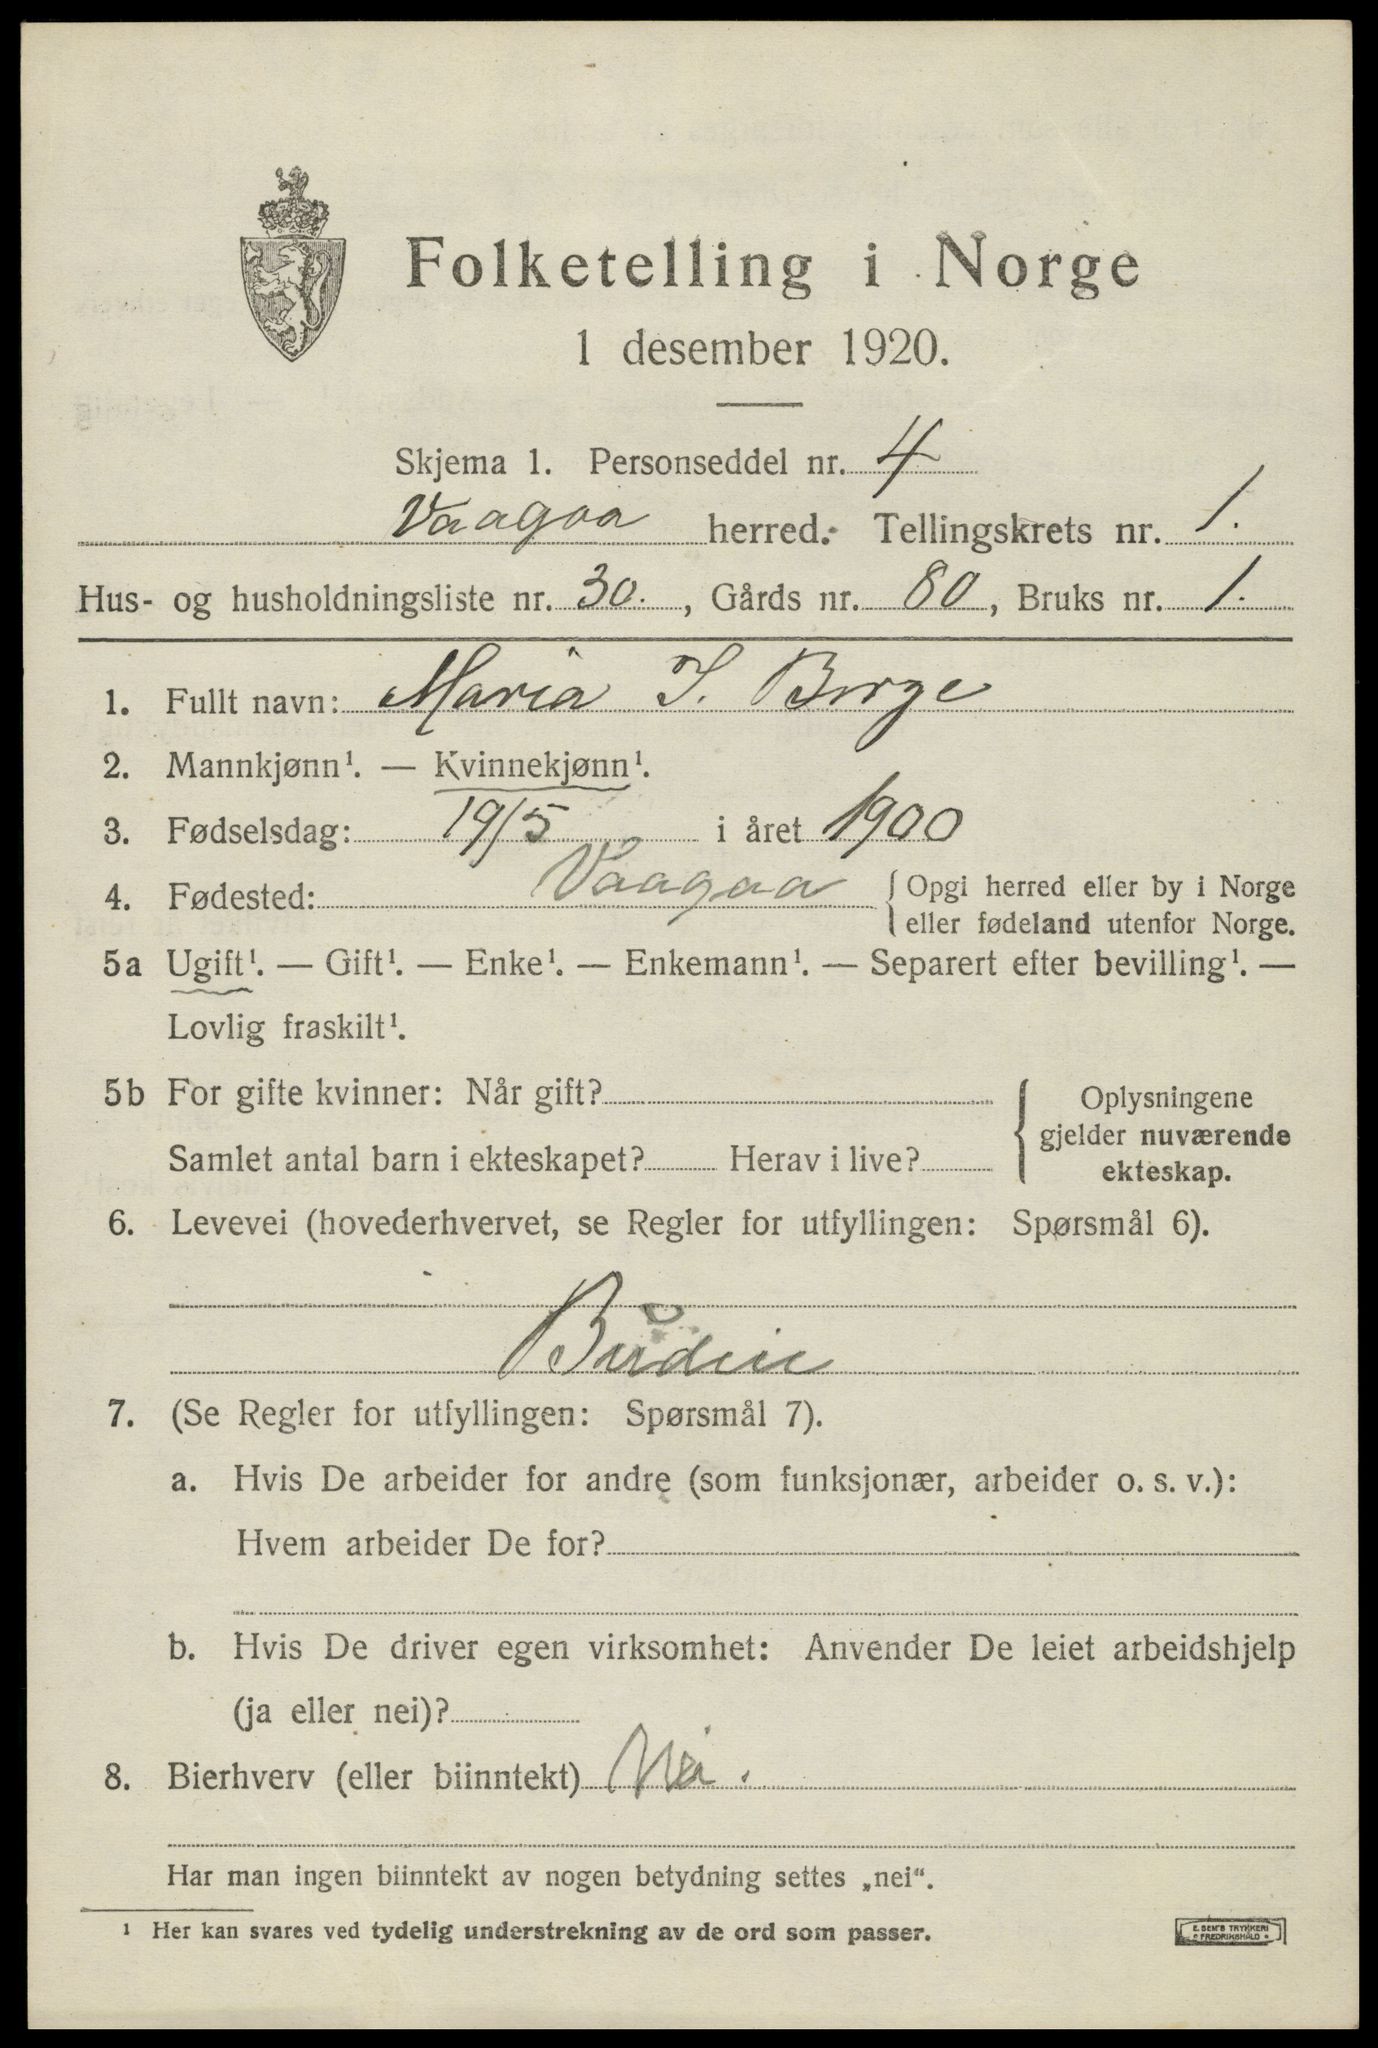 Folketelling i Norge
1 desember 1920.
Skjema 1. Personseddel nr. 4
Vaagaa herred. Tellingskrets nr. 1.
Hus- og husholdningsliste nr. 30. , Gårds nr. 80, Bruks nr. 1.
1. Fullt navn: Maria I. Borge
2. Mannkjønn¹. — Kvinnekjønn¹.
3. Fødselsdag: 19/5 i året 1900
4. Fødested: Vaagaa { Opgi herred eller by i Norge
eller fødeland utenfor Norge.
5a Ugift¹. — Gift¹. — Enke¹. — Enkemann¹. — Separert efter bevilling¹. —
Lovlig fraskilt¹.
5b For gifte kvinner: Når gift?
Samlet antal barn i ekteskapet? Herav i live?
Oplysningene
gjelder nuværende
ekteskap.
6. Levevei (hovederhvervet, se Regler for utfyllingen: Spørsmål 6).
Budeie
7. (Se Regler for utfyllingen: Spørsmål 7).
a. Hvis De arbeider for andre (som funksjonær, arbeider o. s. v.):
Hvem arbeider De for?
b. Hvis De driver egen virksomhet: Anvender De leiet arbeidshjelp
(ja eller nei)?
8. Bierhverv (eller biinntekt) Nei.
Har man ingen biinntekt av nogen betydning settes „nei“.
¹ Her kan svares ved tydelig understrekning av de ord som passer.
E. SEM'S TRYKKERI
FREDRIKSHALD